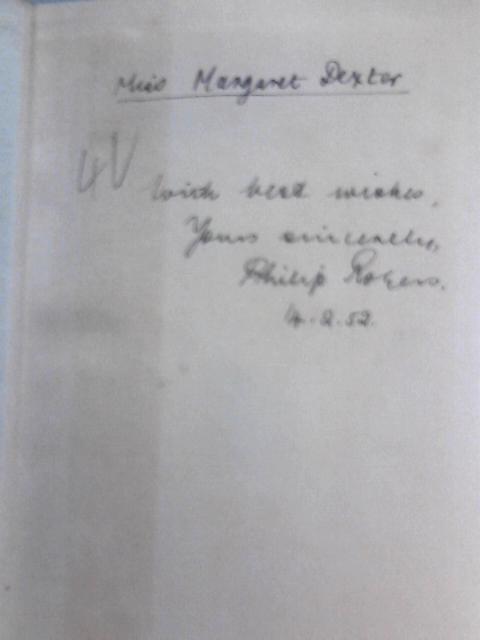 Miss Margaret Dexter
With best wishes,
Yours sincerely,
Philip Rogers.
4.2.52.